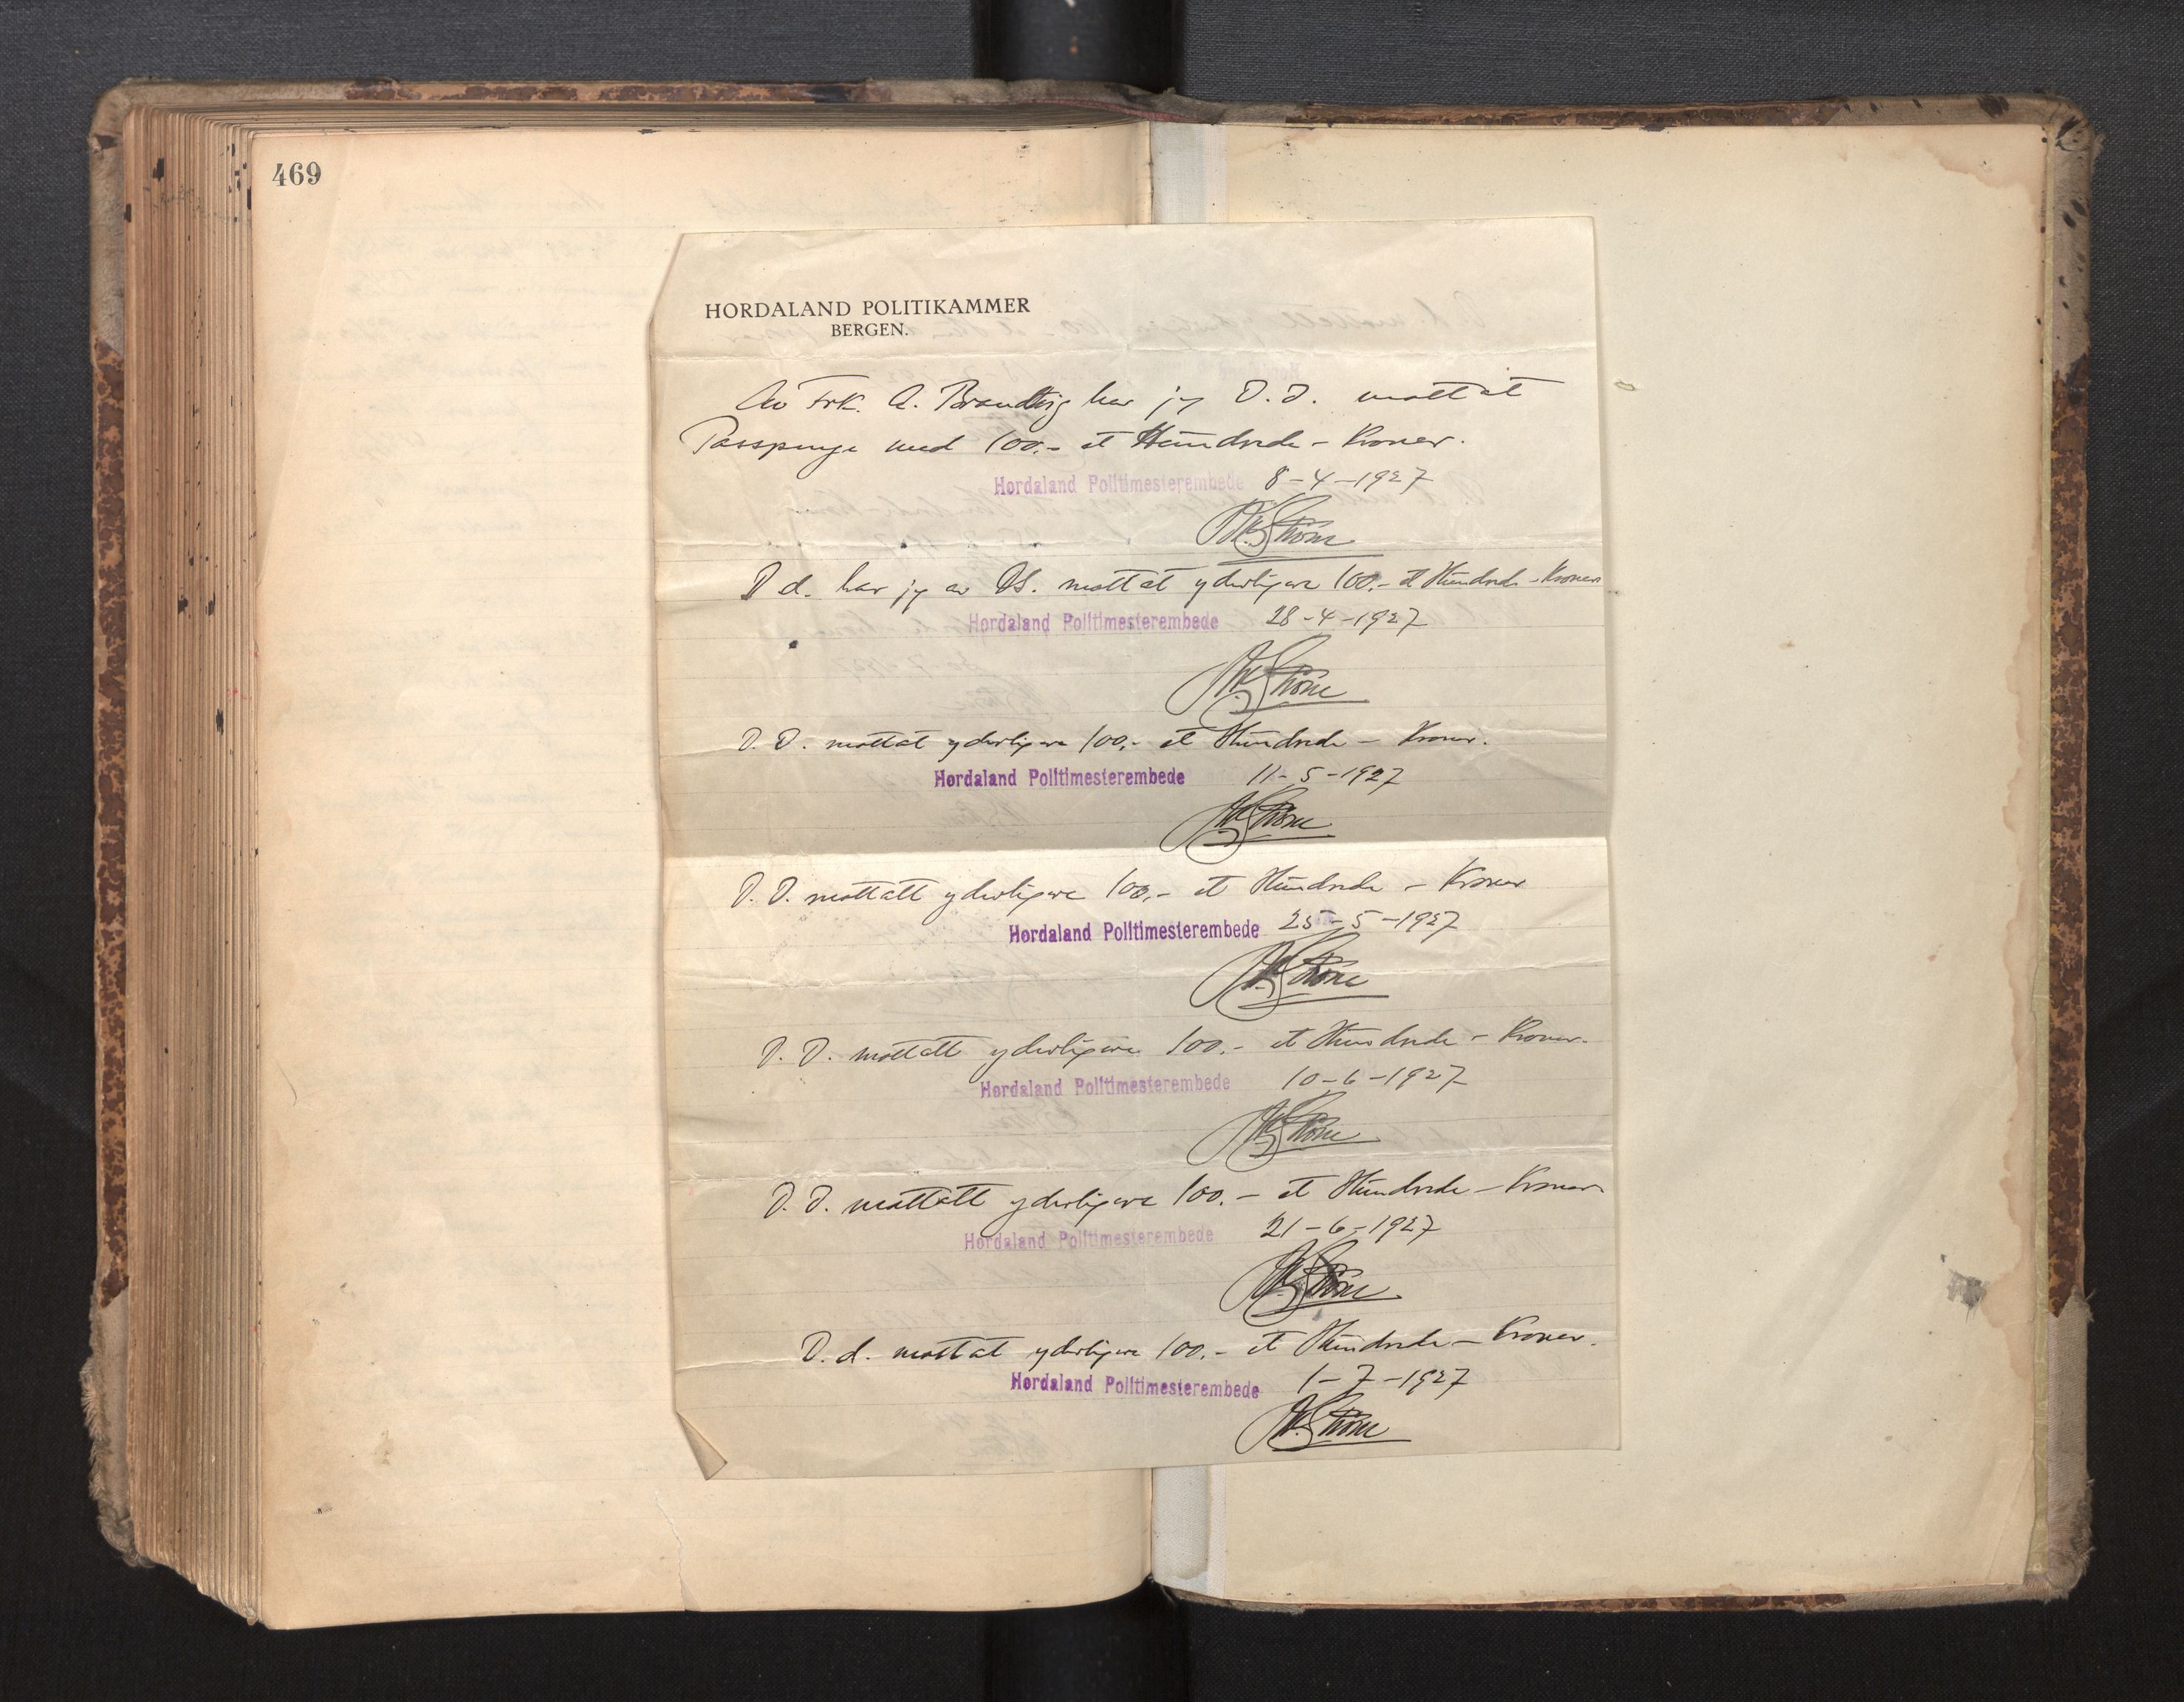 469
HORDALAND POLITIKAMMER
BERGEN.
Av Frk. A. Brandtzæg har jeg D. D. mottat
Passpenge med 100.- et Hundrede - Kroner.
Hordaland Politimesterembede 8-4-1927
D d. har jeg av DS. mottat yderligere 100.- et Hundrede - Kroner
Hordaland Politimesterembede 28-4-1927
D. D. mottat yderligere 100,- et Hundrede - Kroner.
Hordaland Politimesterembede 11-5-1927
D. D. mottatt yderligere 100,- et Hundrede - Kroner
Hordaland Politimesterembede 25-5-1927
D. D. mottatt yderligere 100.- et Hundrede - Kroner.
Hordaland Politimesterembede 10-6-1927
D. D. mottatt yderligere 100.- et Hundrede - Kroner
Hordaland Politimesterembede 21-6-1927
D. d. mottat yderligere 100.- et Hundrede - Kroner.
Hordaland Politimesterembede 1-7-1927